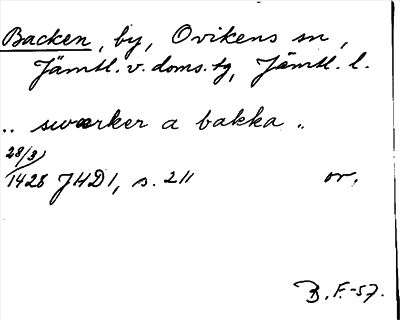 Backen, by, Ovikens sn,
Jämtl. v. doms. tg, Jämtl. l.
.. swærker a bakka ..
28/3
1428 JHD 1, s. 211 or.
B. F.-57.